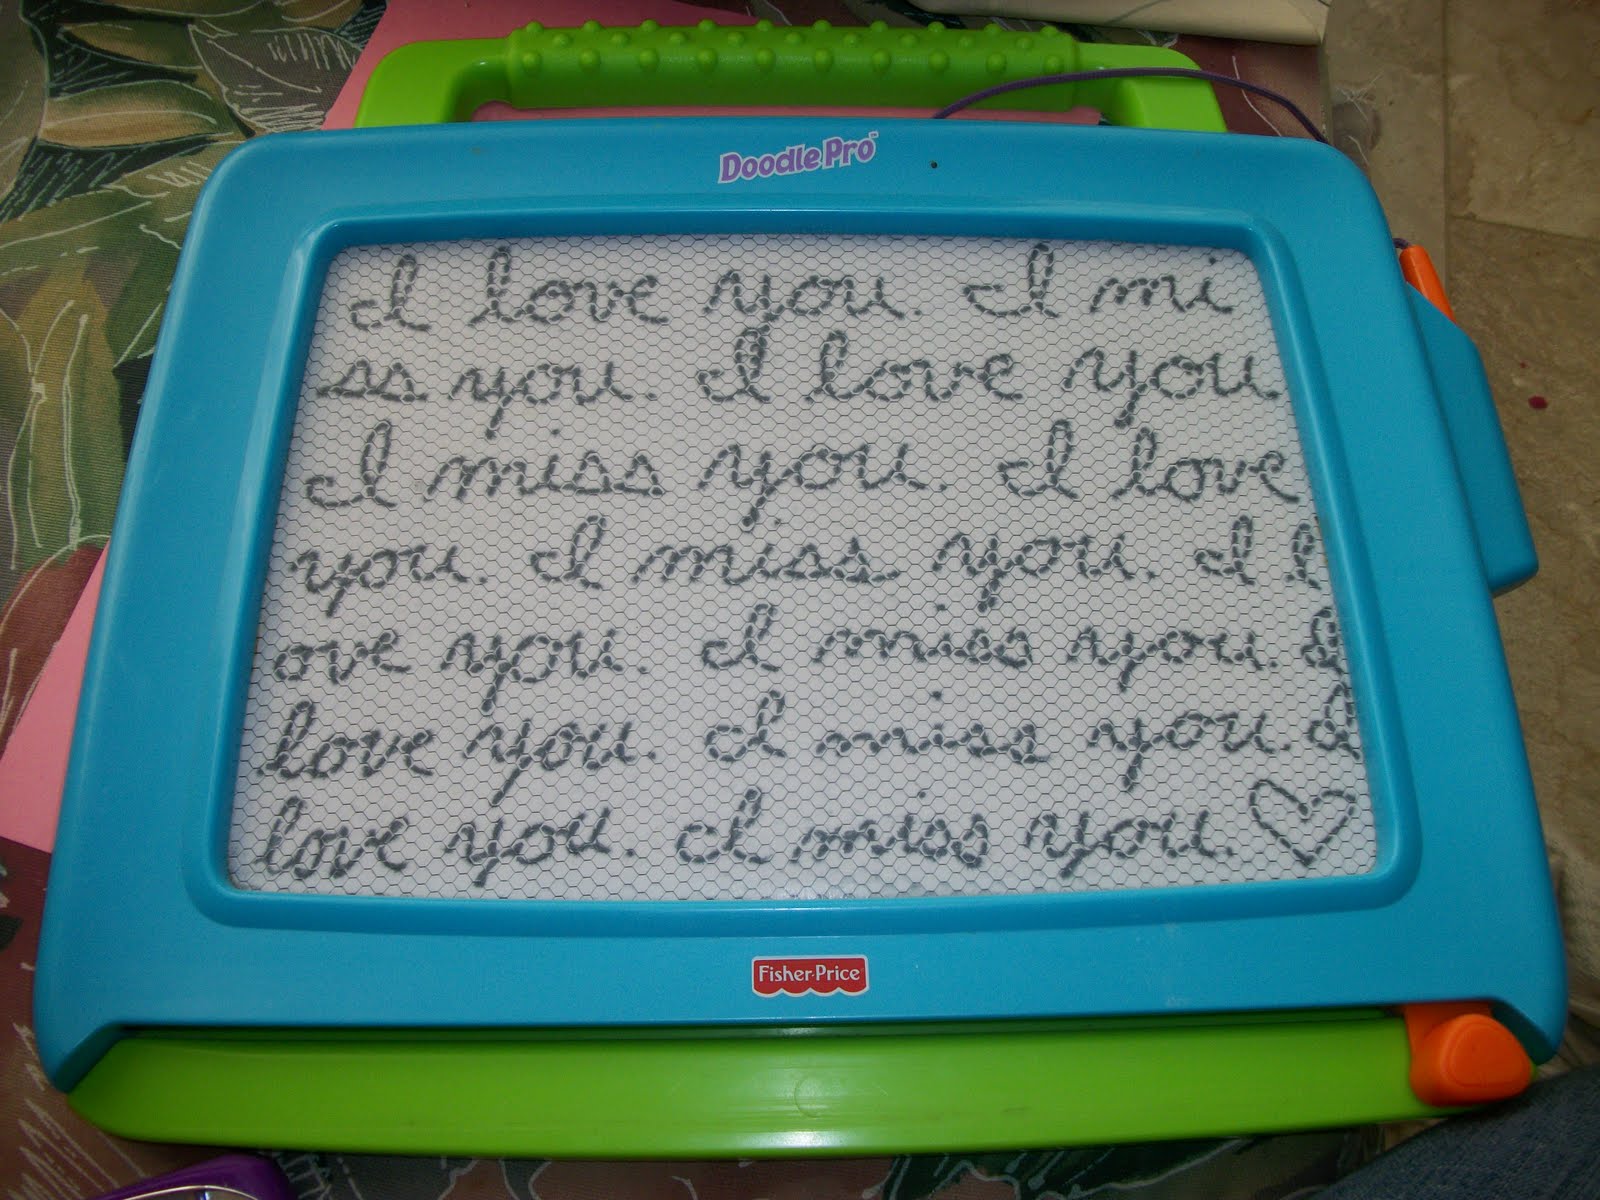 Doodle Pro™
I love you. I mi
ss you. I love you
I miss you. I love
you. I miss you. I l
ove you. I miss you. I
love you. I miss you. I
love you. I miss you. ♡
Fisher-Price